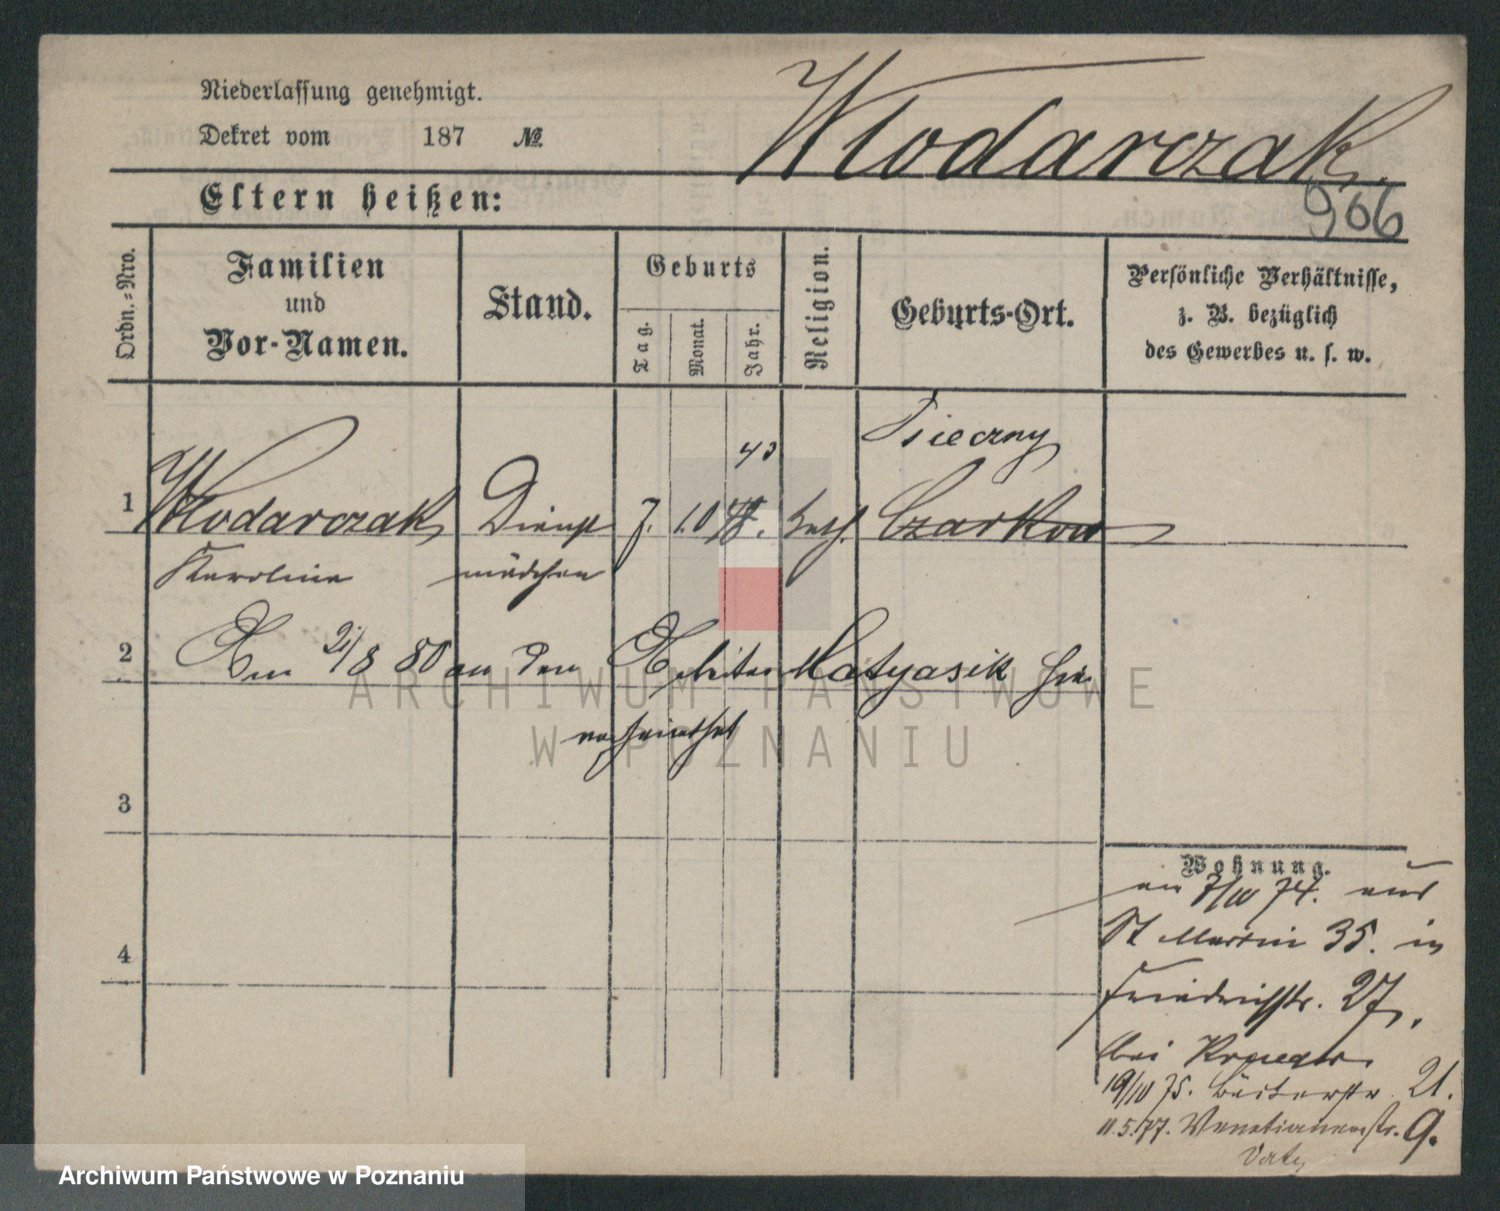 Niederlassung genehmigt.
Dekret vom 187 №
Wlodarczak.
966
Eltern heißen:
Ordn.=Nro.
Familien
und
Vor-Namen.
Stand.
Geburts
Tag.
Monat.
Jahr.
Religion.
Geburts-Ort.
Persönliche Verhältnisse,
z. B. bezüglich
des Gewerbes u. s. w.
43 Psieczny
1 Wlodarczak Dienst 7. 10 kath. Czarkow
Karoline mädchen
2 Am 21/8 80 an den Arbeiter Matyasik hier
verheirathet
3
4
Wohnung.
am 7/IV 74. aus
St Martin 35. in
Friedrichstr. 27,
bei
19/IV 75. Bäckerstr 21.
11.5.77. Venetianerstr. 9.
ARCHIWUM PAŃSTWOWE
W POZNANIU
Archiwum Państwowe w Poznaniu